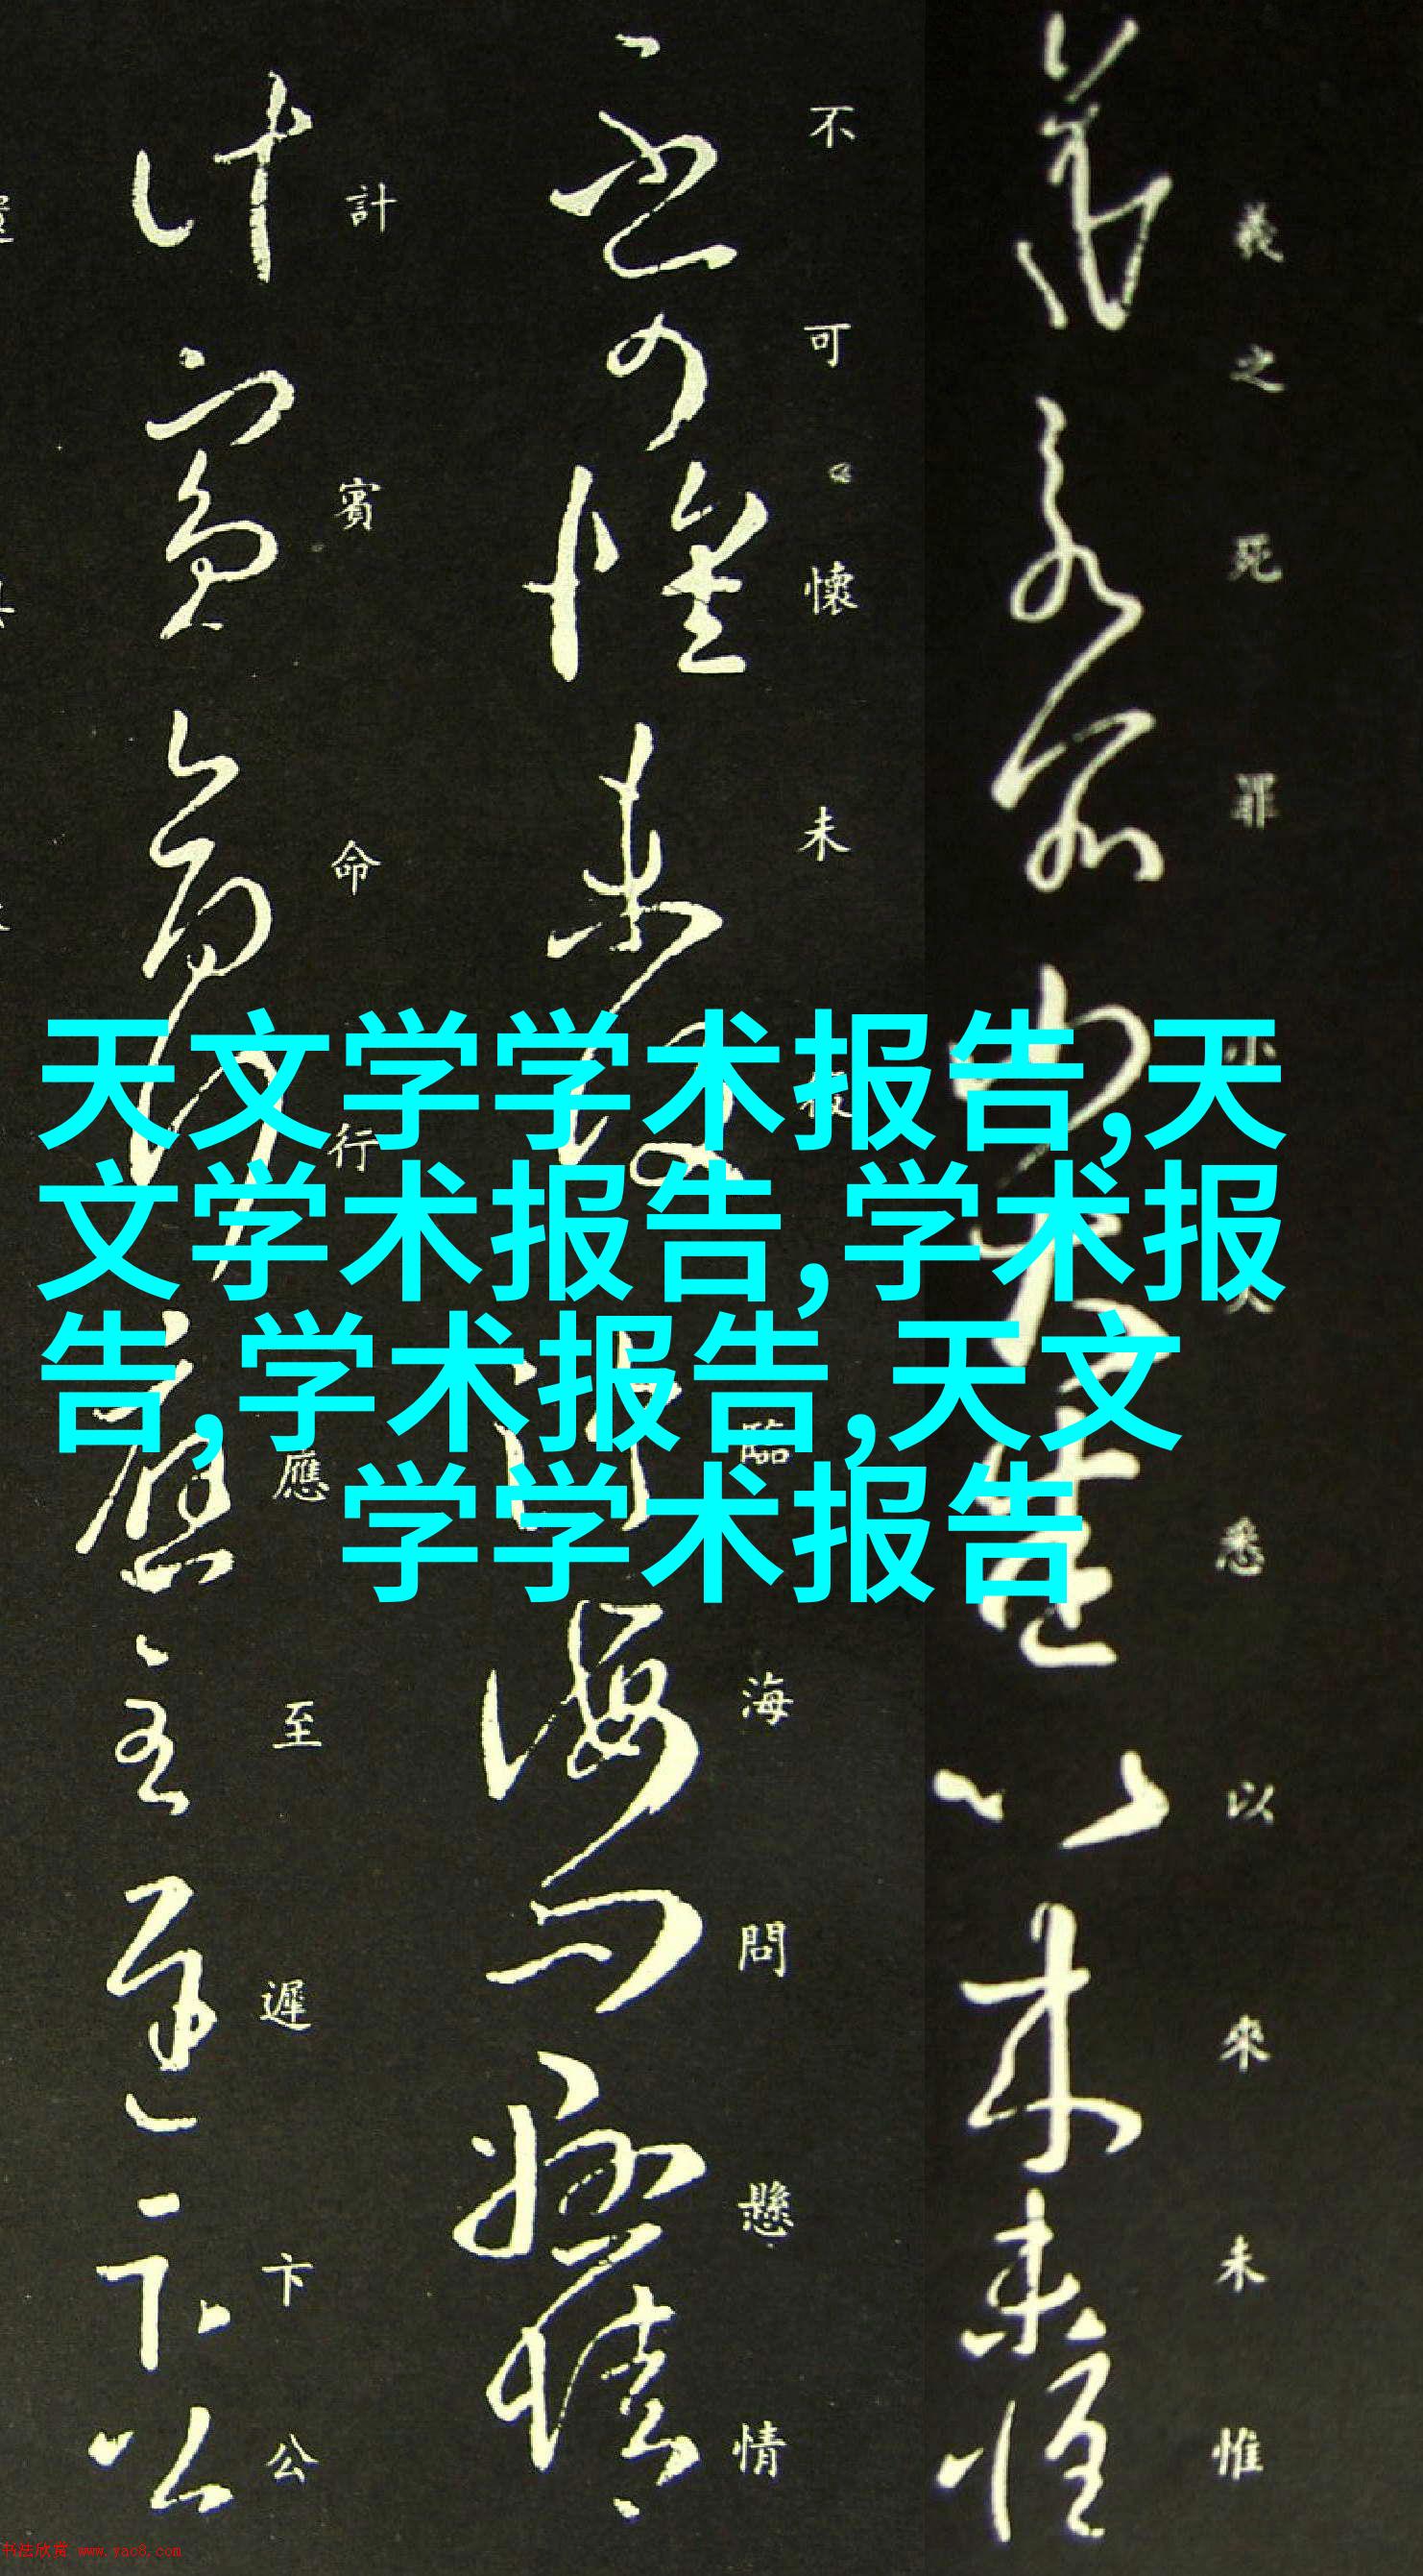 天文学学术报告,天
文学术报告,学术报
告,学术报告,天文
学学术报告
羲之死罪小大悉以來未惟
不可懷未 臨海問懸情
計賓命行應至遲卞公
书法欣赏 www.yac8.com